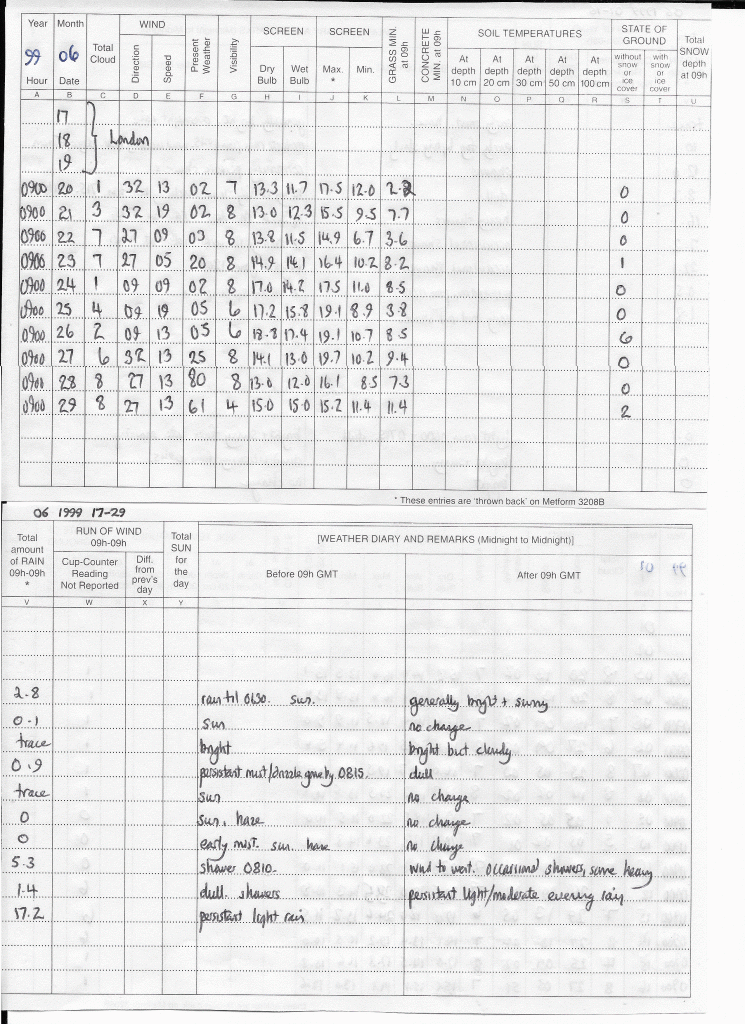 Year Month Total Cloud WIND Present Weather Visibility SCREEN SCREEN GRASS MIN. at 09h CONCRETE MIN. at 09h SOIL TEMPERATURES STATE OF GROUND Total SNOW depth at 09h
99 06 Direction Speed Dry Bulb Wet Bulb Max. * Min. At depth 10 cm At depth 20 cm At depth 30 cm At depth 50 cm At depth 100 cm without snow or ice cover with snow or ice cover
Hour Date
A B C D E F G H I J K L M N O P Q R S T U
17
18 London
19
0900 20 1 32 13 02 7 13.3 11.7 17.5 12.0 0
0900 21 3 32 19 02 8 13.0 12.3 15.5 9.5 7.7 0
0900 22 7 27 09 03 8 13.8 11.5 14.9 6.7 3.6 0
0900 23 7 27 05 20 8 14.9 14.1 16.4 10.2 8.2 1
0900 24 1 09 09 02 8 17.0 14.2 17.5 11.0 8.5 0
0900 25 4 09 19 05 6 17.2 15.8 19.1 8.9 3.8 0
0900 26 2 09 13 05 6 18.8 17.4 19.1 10.7 8.5
0900 27 6 32 13 25 8 14.1 13.0 19.7 10.2 9.4 0
0900 28 8 27 13 80 8 13.0 12.0 16.1 8.5 7.3 0
0900 29 8 27 13 61 4 15.0 15.0 15.2 11.4 11.4 2
* These entries are 'thrown back' on Metform 3208B
06 1999 17-29
Total amount of RAIN 09h-09h * RUN OF WIND 09h-09h Total SUN for the day [WEATHER DIARY AND REMARKS (Midnight to Midnight)]
Cup-Counter Reading Not Reported Diff. from prev's day Before 09h GMT After 09h GMT
V W X Y
2.8 rain til 0630. sun. generally bright + sunny
0.1 sun no change
trace bright bright but cloudy
0.9 persistant mist/drizzle gone by 0815. dull
trace sun no change
0 sun, haze no change
0 early mist. sun. haze no change
5.3 shower 0810- wind to west. occassional showers, some heavy
1.4 dull. showers persistant light/moderate evening rain
17.2 persistant light rain